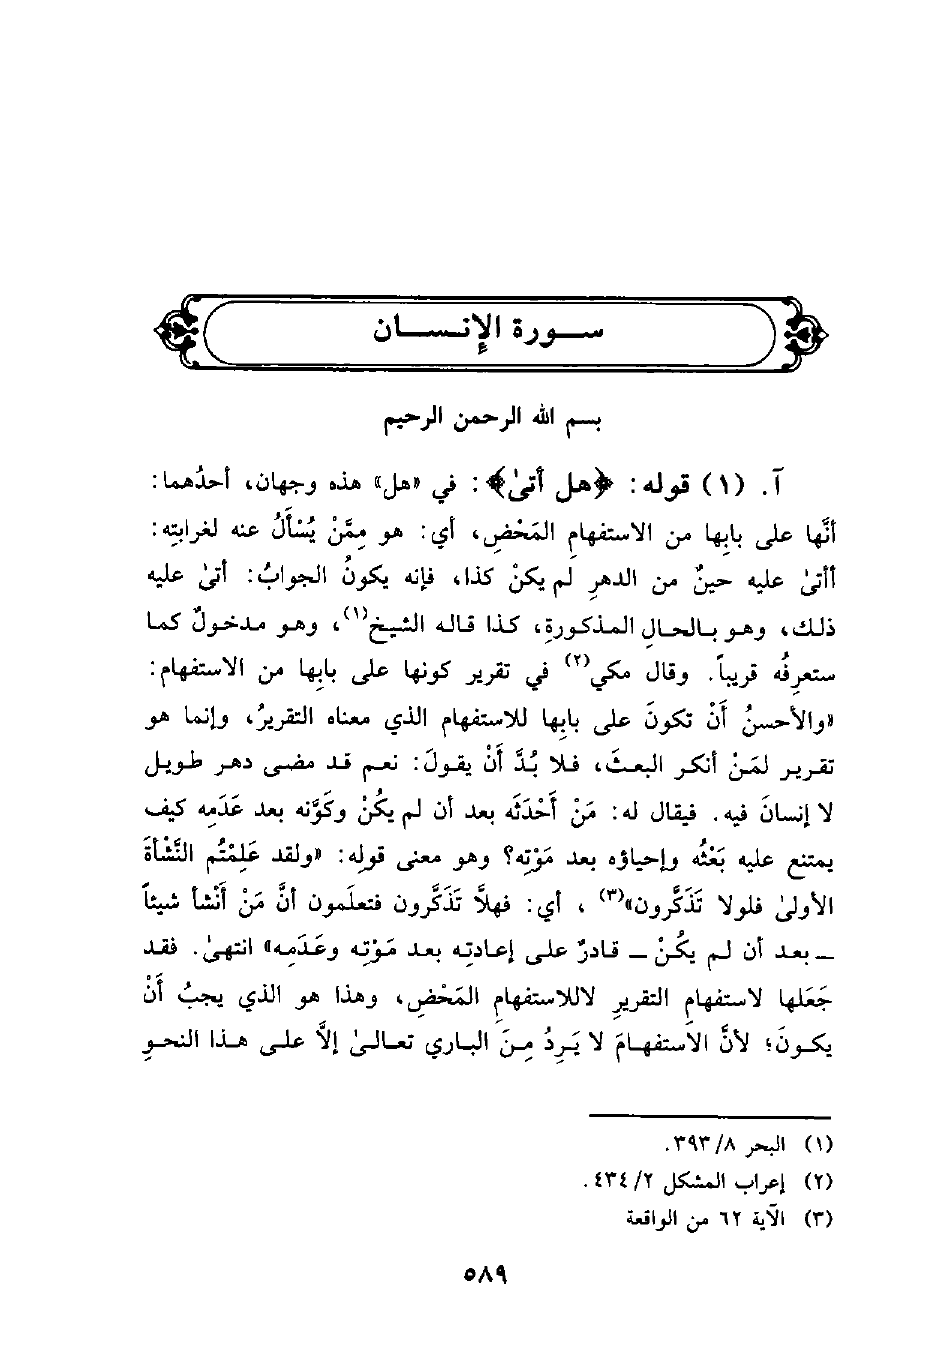 سورة الإنسان
بسم الله الرحمن الرحيم
آ. (١) قوله: ﴿هل أتىٰ﴾: في «هل» هذه وجهان، أحدُهما:
أنَّها على بابِها من الاستفهامِ المَحْضِ، أي: هو مِمَّنْ يُسْأَلُ عنه لغرابتِه:
أأتىٰ عليه حينٌ من الدهرِ لم يكنْ كذا، فإنه يكونُ الجوابُ: أتىٰ عليه
ذلك، وهو بالحالِ المذكورةِ، كذا قاله الشيخ(١)، وهو مدخولٌ كما
ستعرِفُه قريباً. وقال مكي(٢) في تقرير كونها على بابِها من الاستفهام:
«والأحسنُ أَنْ تكونَ على بابِها للاستفهام الذي معناه التقريرُ، وإنما هو
تقرير لمَنْ أنكر البعثَ، فلا بُدَّ أَنْ يقولَ: نعم قد مضى دهر طويل
لا إنسانَ فيه. فيقال له: مَنْ أَحْدَثَه بعد أن لم يكُنْ وكَوَّنه بعد عَدَمِه كيف
يمتنع عليه بَعْثُه وإحياؤه بعد مَوْتِه؟ وهو معنى قولِه: «ولقد عَلِمْتُم النَّشْأةَ
الأولىٰ فلولا تَذَكَّرون»(٣) ، أي: فهلاَّ تَذَكَّرون فتعلَمون أنَّ مَنْ أَنْشأ شيئاً
ــ بعد أن لم يكُنْ ــ قادرٌ على إعادتِه بعد مَوْتِه وعَدَمِه» انتهىٰ. فقد
جَعَلها لاستفهامِ التقريرِ لاللاستفهامِ المَحْضِ، وهذا هو الذي يجبُ أَنْ
يكونَ؛ لأنَّ الاستفهامَ لا يَرِدُ مِنَ الباري تعالىٰ إلاَّ على هذا النحوِ
(١) البحر ٣٩٣/٨.
(٢) إعراب المشكل ٤٣٤/٢.
(٣) الآية ٦٢ من الواقعة
٥٨٩